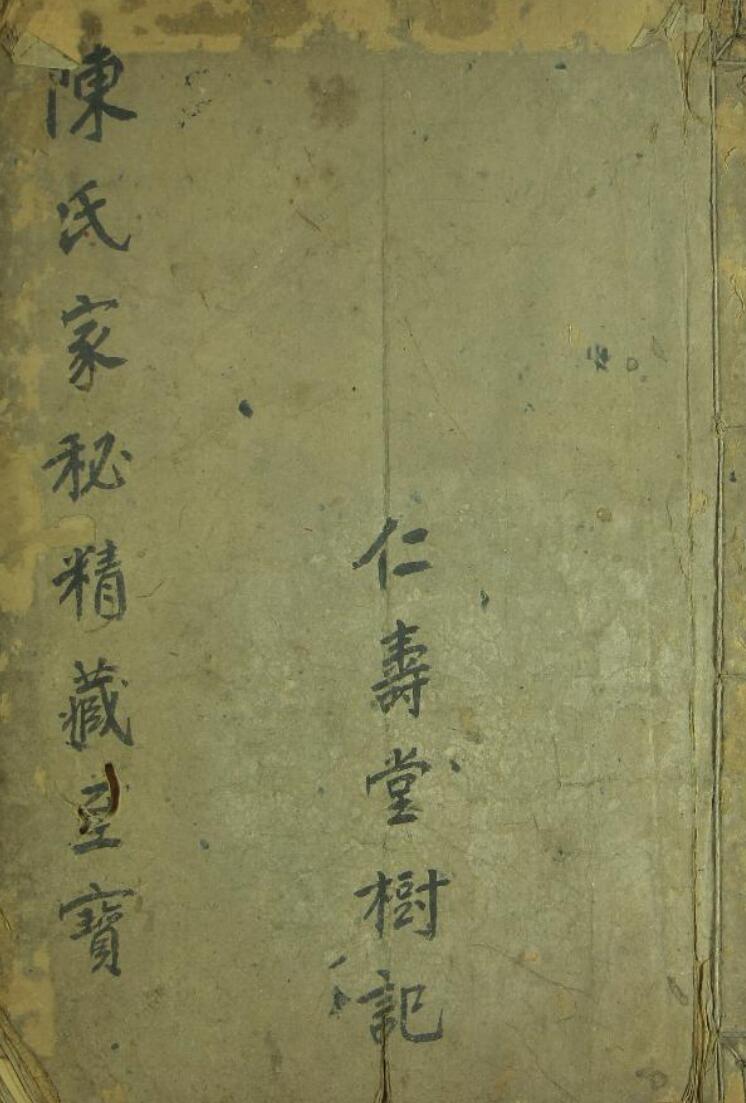 仁壽堂樹記
陳氏家秘精藏至寶